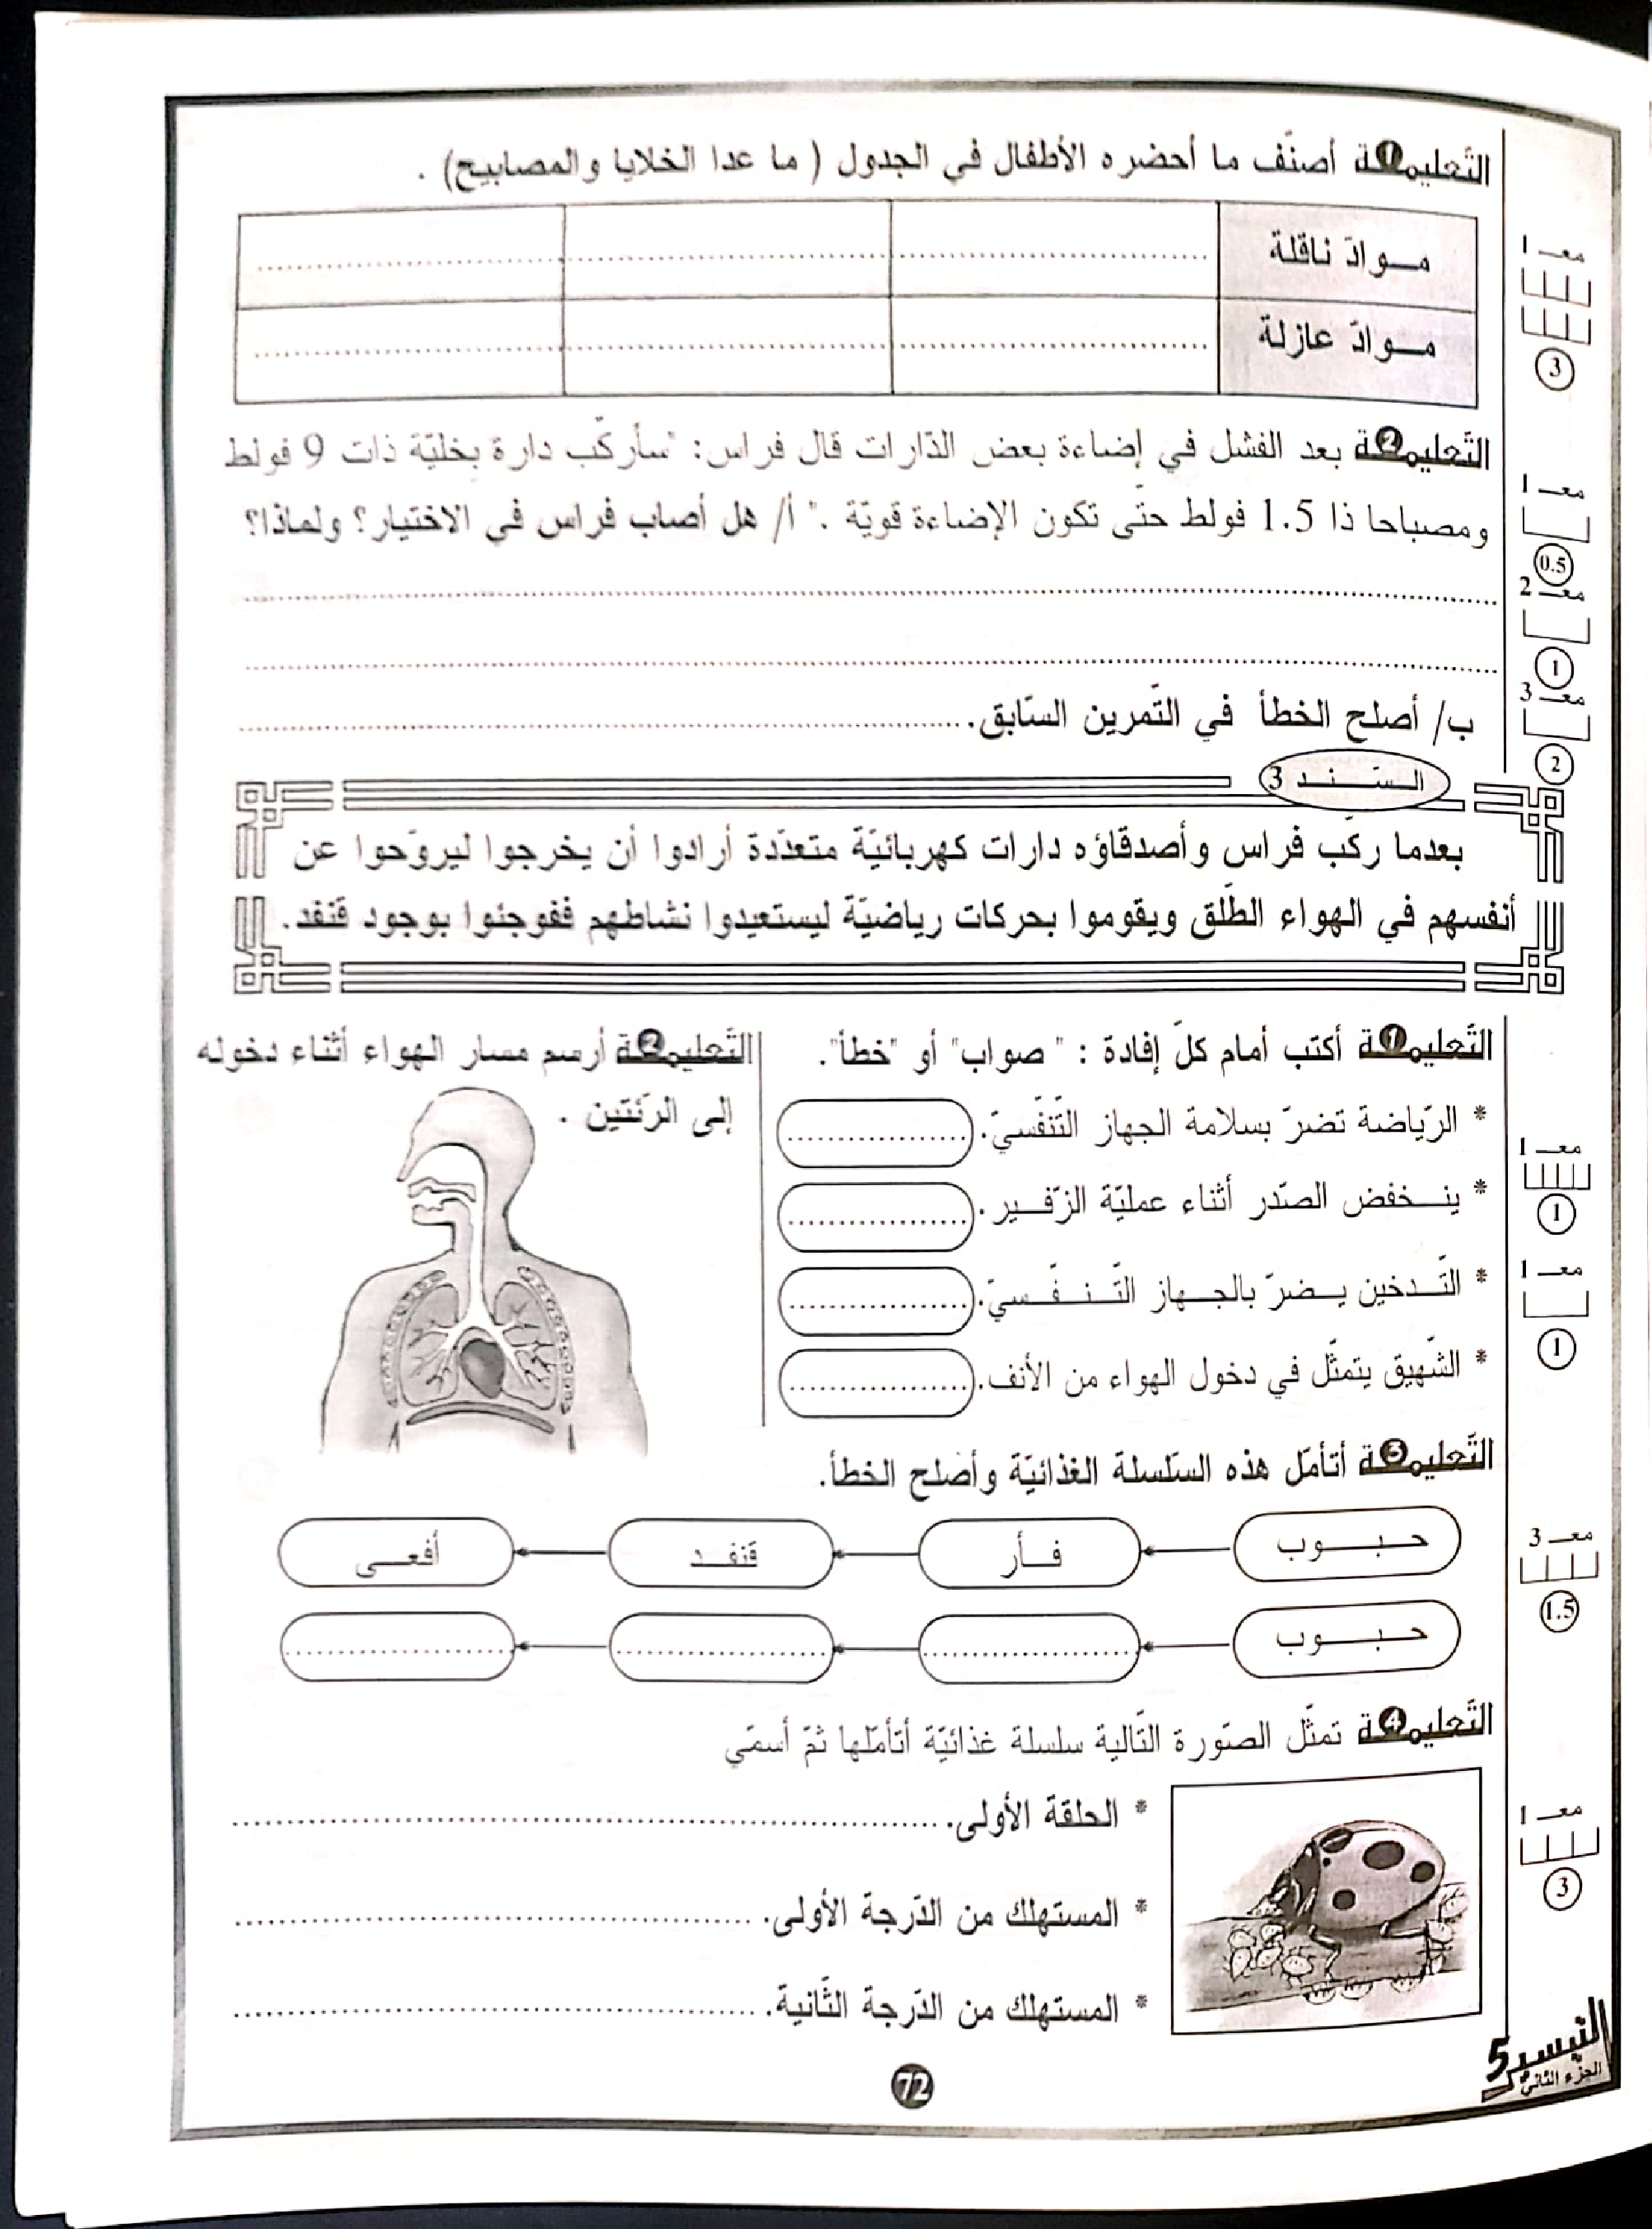 التّعليمـ1ـة أصنّف ما أحضره الأطفال في الجدول ( ما عدا الخلايا والمصابيح) .
مـوادّ ناقلة
مـوادّ عازلة
معـ 1
3
التّعليمـ2ـة بعد الفشل في إضاءة بعض الدّارات قال فراس: "سأركّب دارة بخليّة ذات 9 فولط
ومصباحا ذا 1.5 فولط حتّى تكون الإضاءة قويّة ." أ/ هل أصاب فراس في الاختيار؟ ولماذا؟
ب/ أصلح الخطأ في التّمرين السّابق.
معـ 1
0.5
معـ 2
1
معـ 3
2
السّـنـد 3
بعدما ركّب فراس وأصدقاؤه دارات كهربائيّة متعدّدة أرادوا أن يخرجوا ليروّحوا عن
أنفسهم في الهواء الطّلق ويقوموا بحركات رياضيّة ليستعيدوا نشاطهم ففوجئوا بوجود قنفد.
التّعليمـ1ـة أكتب أمام كلّ إفادة : " صواب" أو "خطأ".
* الرّياضة تضرّ بسلامة الجهاز التّنفّسيّ.
* ينـخفض الصّدر أثناء عمليّة الزّفـير.
* التّـدخين يـضرّ بالجـهاز التّـنـفّـسيّ.
* الشّهيق يتمثّل في دخول الهواء من الأنف.
معـ 1
1
معـ 1
1
التّعليمـ2ـة أرسم مسار الهواء أثناء دخوله
إلى الرّئتين .
التّعليمـ3ـة أتأمّل هذه السّلسلة الغذائيّة وأصلح الخطأ.
حـبـوب فـأر قنفـد أفعـى
حـبـوب
معـ 3
1.5
التّعليمـ4ـة تمثّل الصّورة التّالية سلسلة غذائيّة أتأمّلها ثمّ أسمّي
* الحلقة الأولى.
* المستهلك من الدّرجة الأولى.
* المستهلك من الدّرجة الثّانية.
معـ 1
3
التيسير 5
الجزء الثاني
72